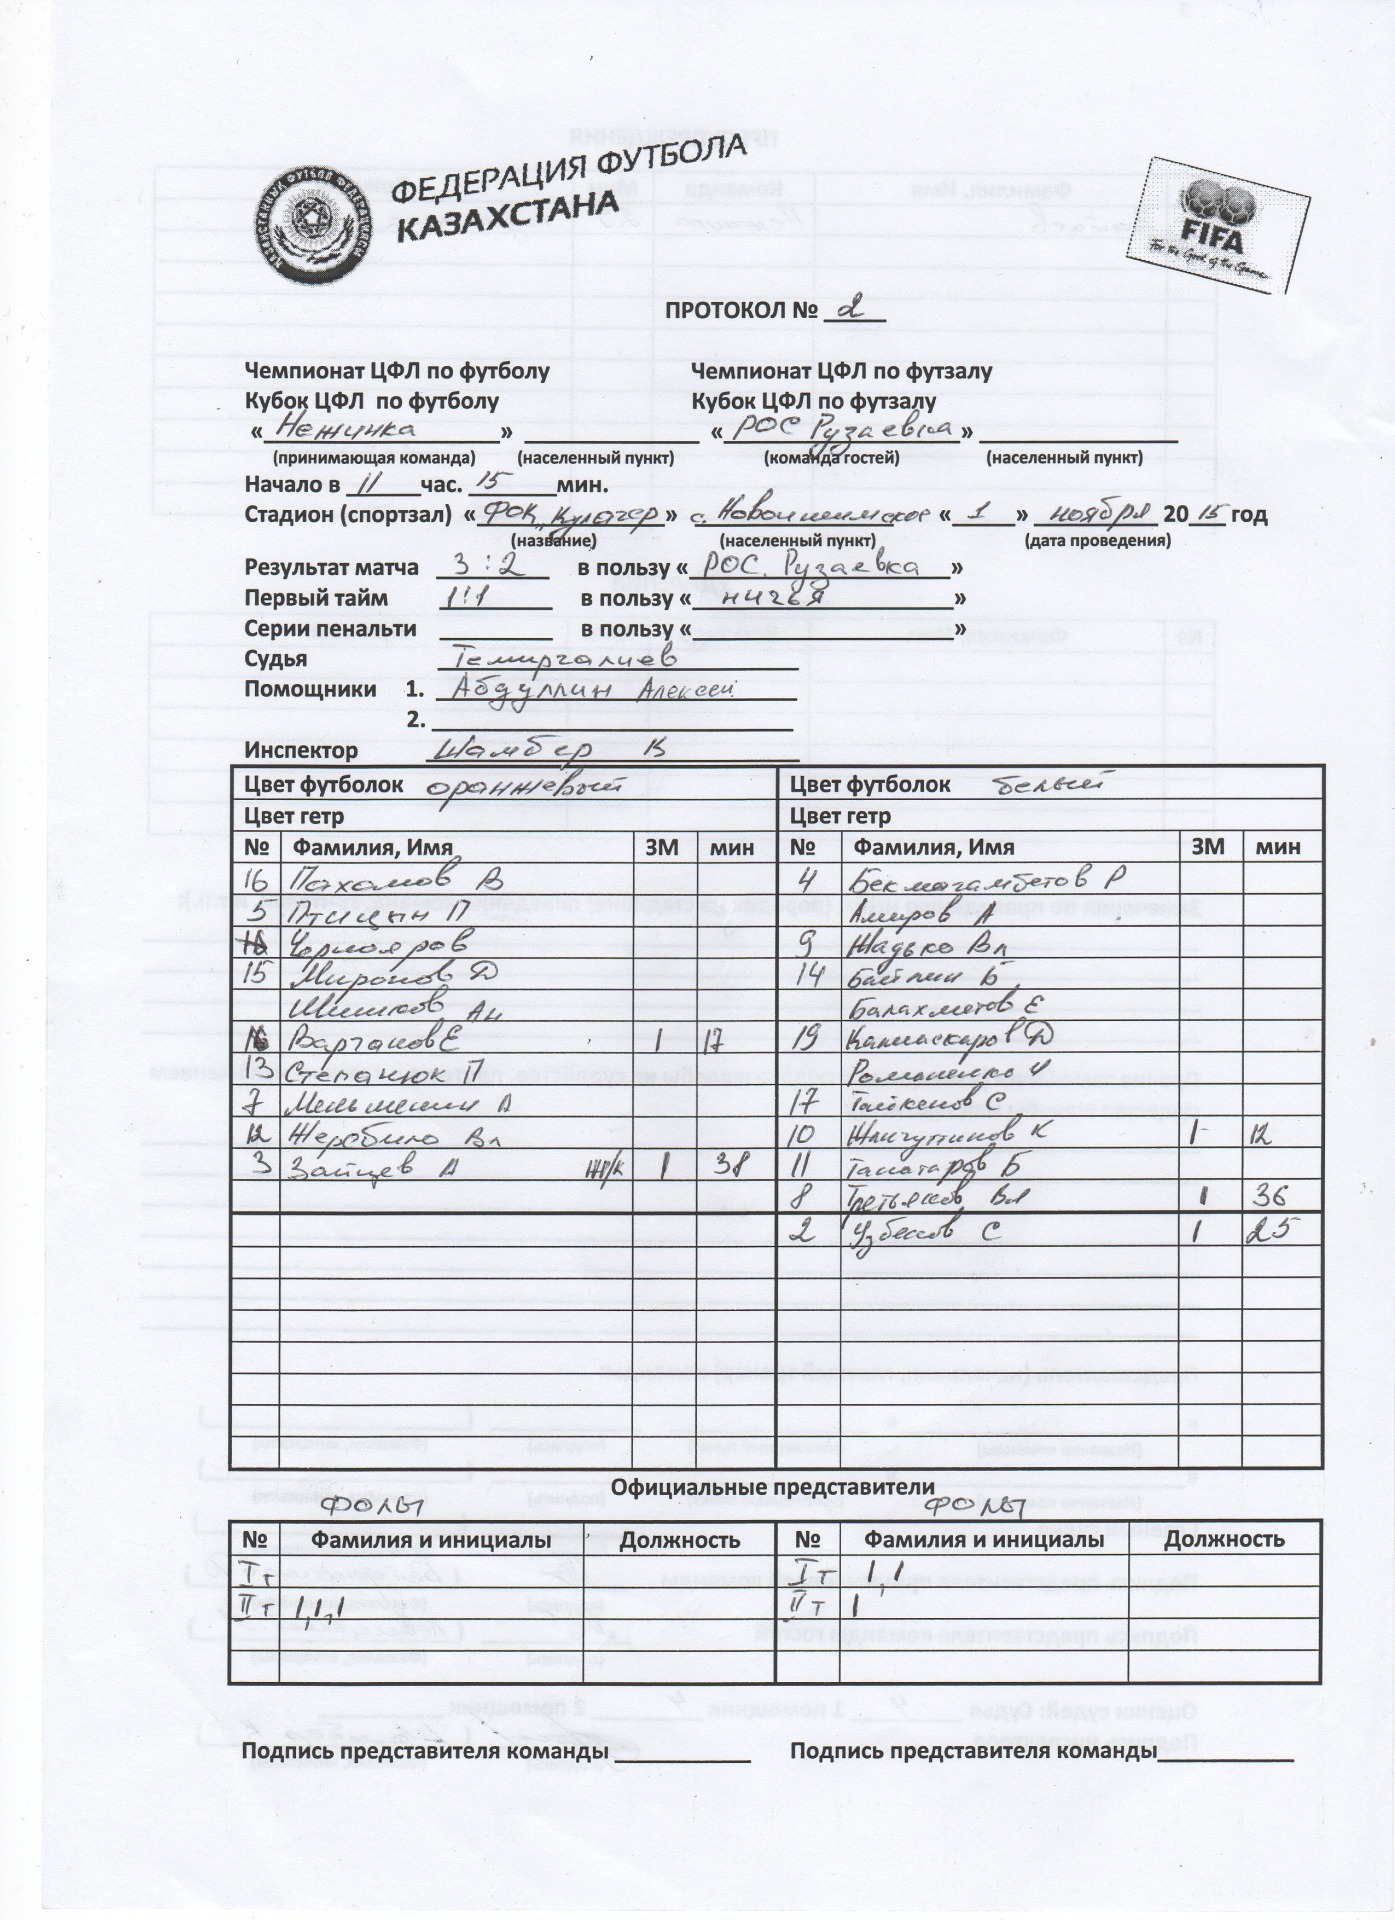 ФЕДЕРАЦИЯ ФУТБОЛА
КАЗАХСТАНА
FIFA
For the Good of the Game
ПРОТОКОЛ № 2
Чемпионат ЦФЛ по футболу Чемпионат ЦФЛ по футзалу
Кубок ЦФЛ по футболу Кубок ЦФЛ по футзалу
« Нежинка » « РОС Рузаевка »
(принимающая команда) (населенный пункт) (команда гостей) (населенный пункт)
Начало в 11 час. 15 мин.
Стадион (спортзал) « ФОК „Кулагер » с. Новоишимское « 1 » ноября 20 15 год
(название) (населенный пункт) (дата проведения)
Результат матча 3:2 в пользу « РОС. Рузаевка »
Первый тайм 1:1 в пользу « ничья »
Серии пенальти в пользу « »
Судья Темиргалиев
Помощники 1. Абдуллин Алексей
2.
Инспектор Шамбер В
Цвет футболок оранжевый Цвет футболок белый
Цвет гетр Цвет гетр
№ Фамилия, Имя ЗМ мин № Фамилия, Имя ЗМ мин
16 Пахомов В 4 Бекмагамбетов Р
5 Птицын П Амиров А
Чернояров 9 Жадько Вл
15 Миронов Д 14 Б
Шишков Ан Балахметов Е
Варганов Е 1 17 19 Д
13 Степанюк П Романенко И
7 А 17 Тайкенов С
12 Жеробило Вл 10 К 1 12
3 Зайцев А ж/к 1 38 11 Танатаров Б
8 Третьяков Вл 1 36
2 Узбеков С 1 25
Официальные представители
ФОЛЫ ФОЛЫ
№ Фамилия и инициалы Должность № Фамилия и инициалы Должность
I т I т 1,1
II т 1,1,1 II т 1
Подпись представителя команды Подпись представителя команды